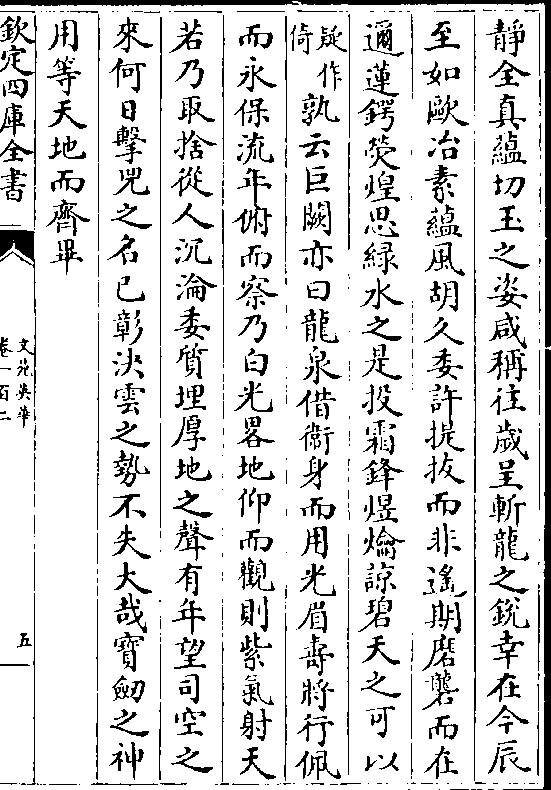 靜全真蘊切玉之姿咸稱往歲呈斬龍之銳幸在今辰
至如歐冶素蘊風胡久委許提拔而非遙期磨礱而在
邇蓮鍔熒煌思綠水之是投霜鋒煜爚諒碧天之可以
疑作倚孰云巨闕亦曰龍泉借衞身而用光眉壽將行佩
而永保流年俯而察乃白光畧地仰而觀則紫氣射天
若乃取捨從人沉淪委質埋厚地之聲有年望司空之
來何日擊兕之名已彰決雲之勢不失大哉寶劒之神
用等天地而齊畢
欽定四庫全書
文苑英華
卷一百二
五